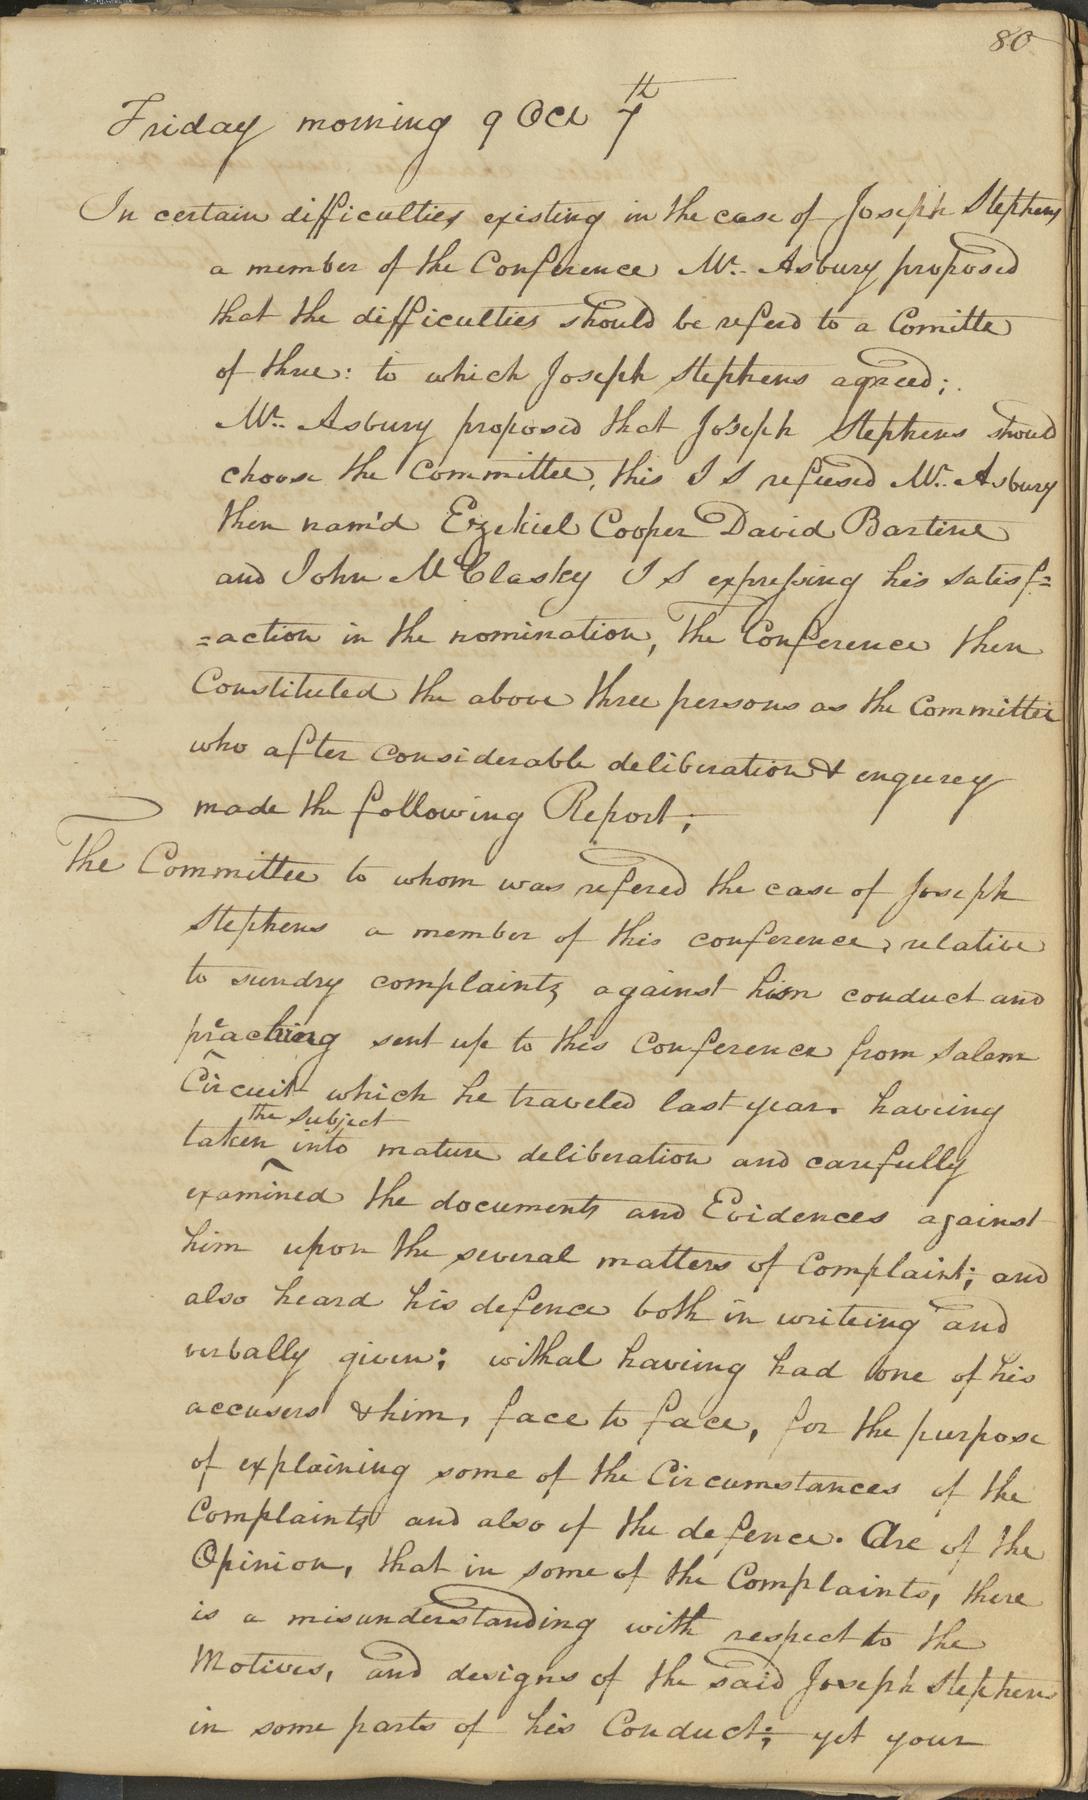 80
Friday morning 9 Oct 7th
In certain difficulties existing in the case of Joseph Stephens
a member of the Conference Mr. Asbury proposed
that the difficulties should be referd to a Comitte
of three: to which Joseph Stephens agreed;
Mr. Asbury proposed that Joseph Stephens should
choose the Committee, this J S refused Mr. Asbury
then nam'd Ezekiel Cooper David Bartine
and John McClasky J S expressing his satisf=
=action in the nomination, The Conference then
Constituted the above three persons as the Committee
who after considerable deliberation & enqurey
made the following Report;
The Committee to whom was refered the case of Joseph
Stephens a member of this conference, relative
to sundry complaints against his conduct and
preaching sent up to this Conference from Salem
Circuit which he traveled last year. haveing
taken the subject into mature deliberation and carefully
examined the documents and Evidences against
him upon the several matters of Complaint; and
also heard his defence both in writeing and
verbally given; withal haveing had one of his
accusers & him, face to face, for the purpose
of explaining some of the Circumstances of the
Complaints and also of the defence. Are of the
Opinion, that in some of the Complaints, there
is a misunderstanding with respect to the
Motives, and designs of the said Joseph Stephens
in some parts of his Conduct; yet your